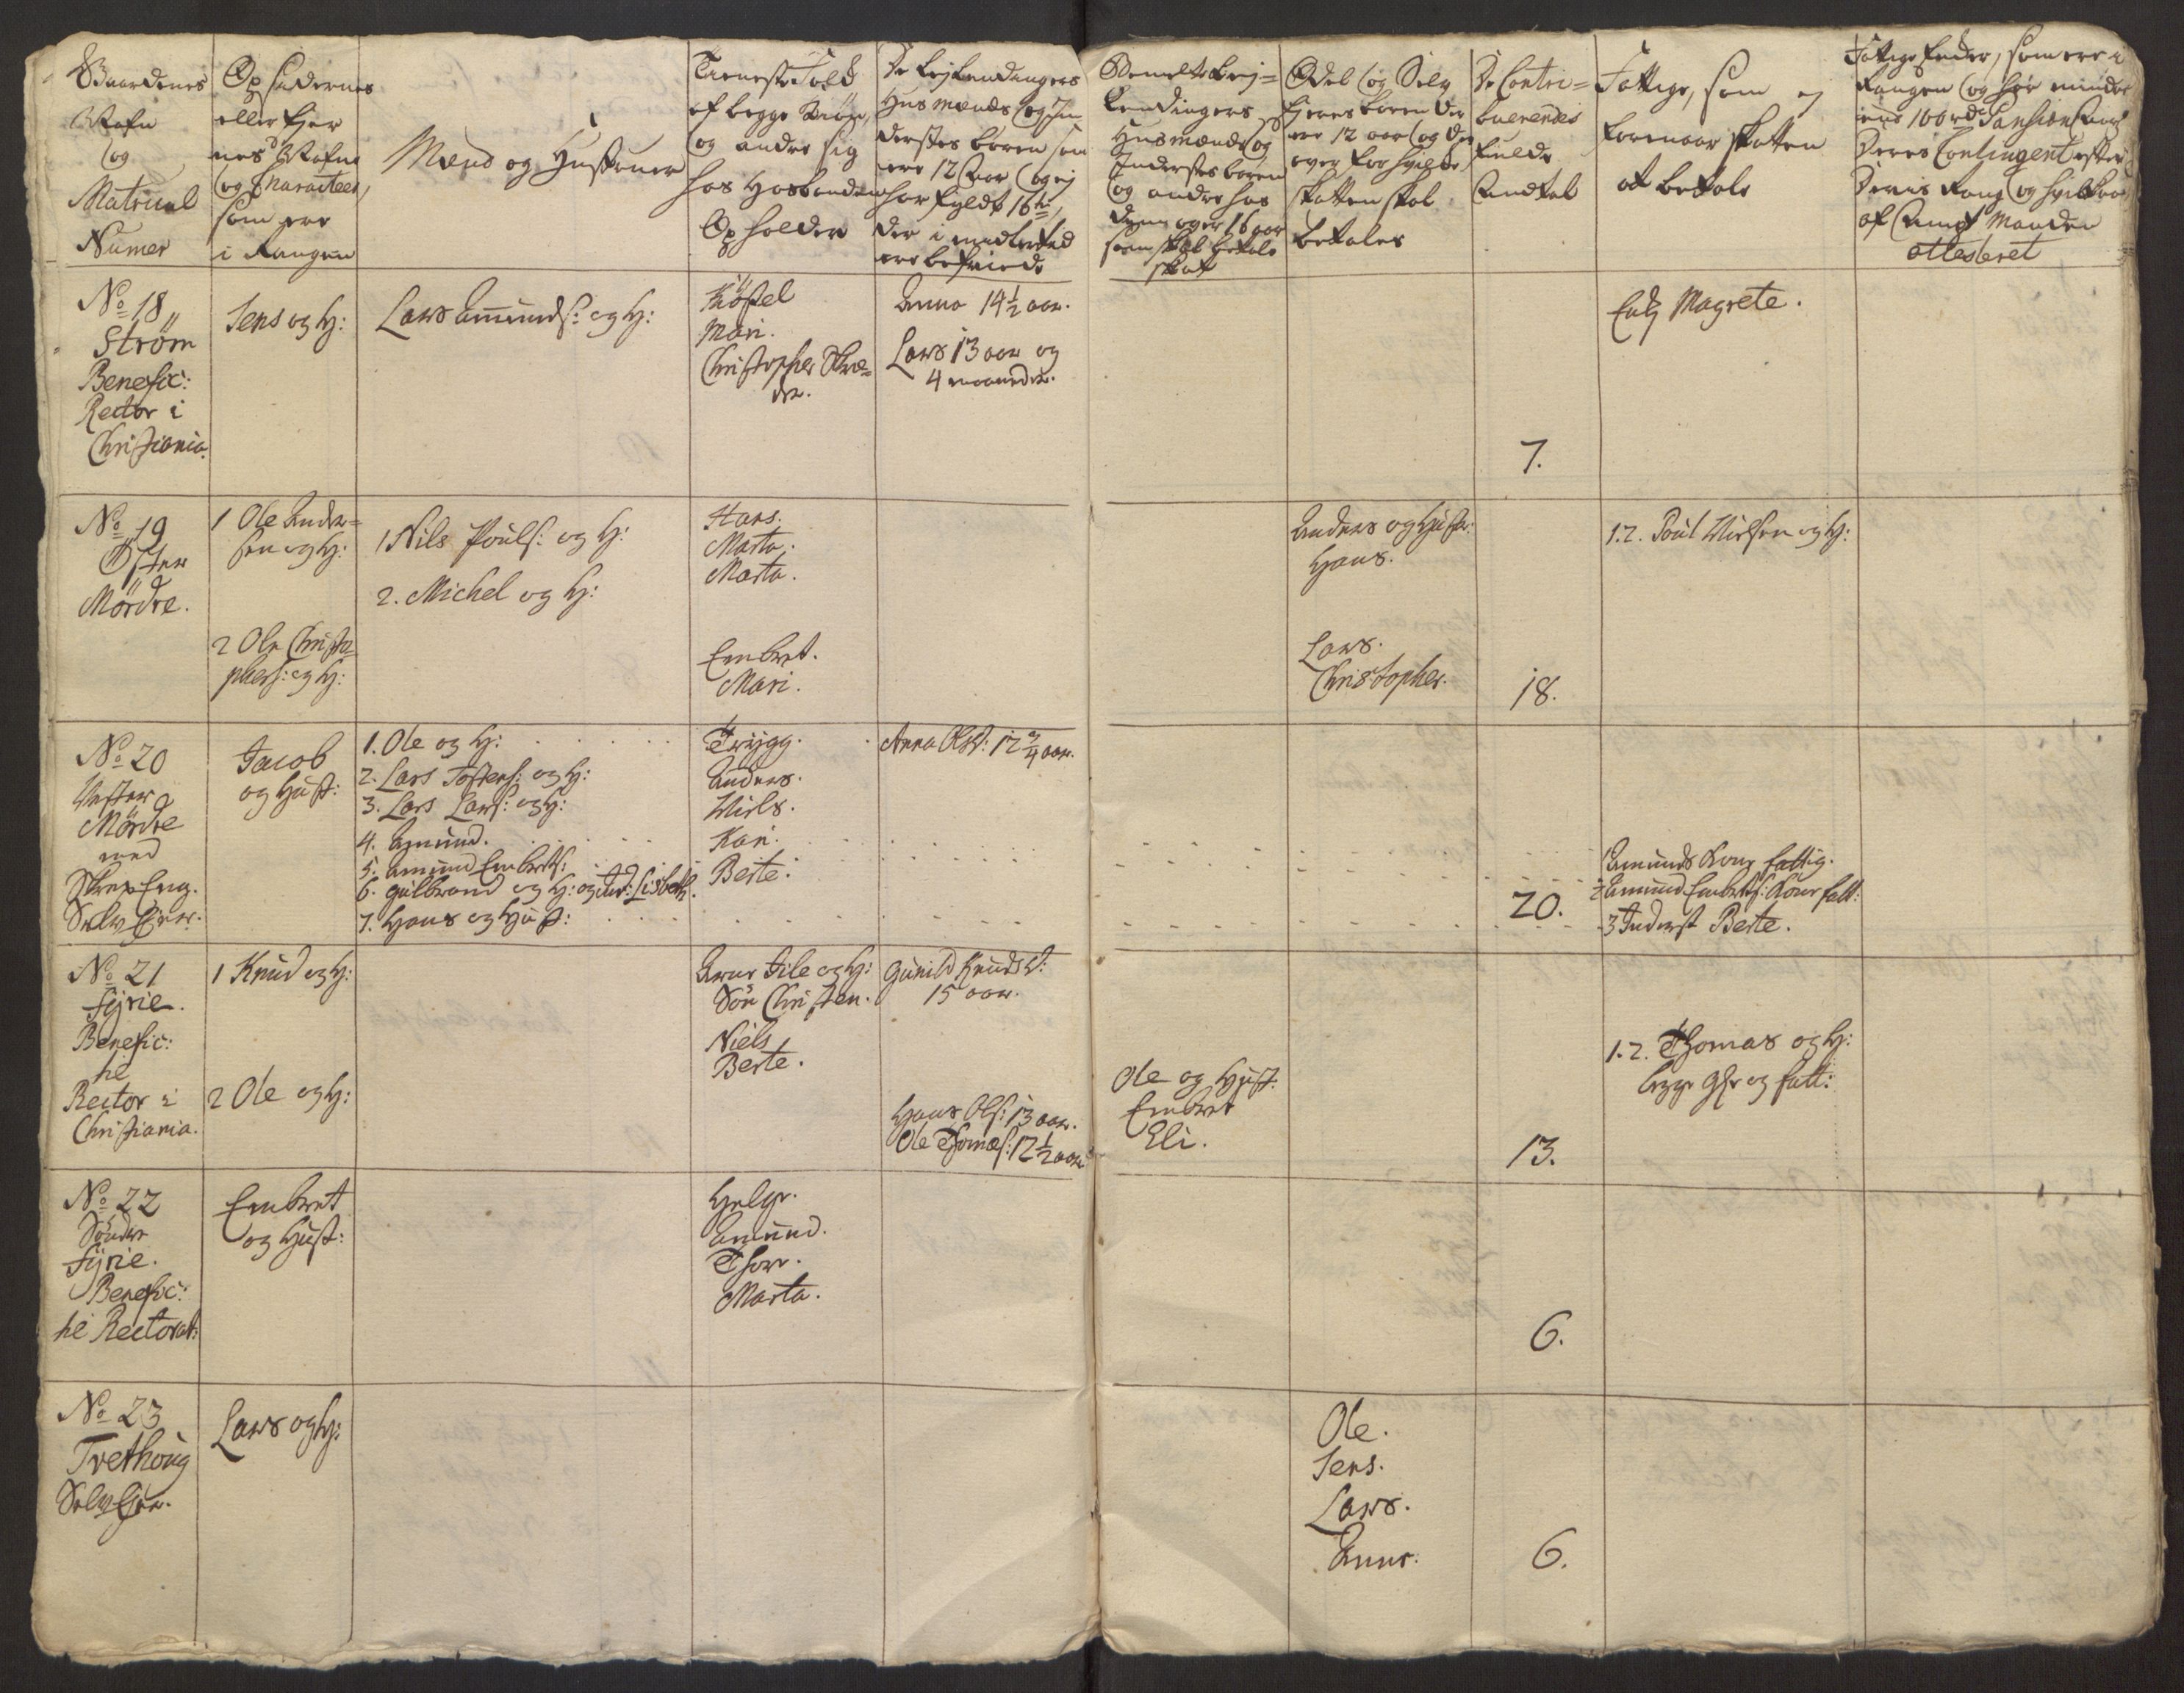 Gaardenes
Nafn
og
Matricul
Numer
Opsidernes
eller Ejer
nes Nafne
og Characteer,
som ere
i Rangen
Mænd og Hustruer
Tieneste Folk
af begge Kiøn,
og andre sig
hos Hosbonden
Opholder
De Lejlendingers
Husmænds og In
dersters børn som
ere 12 Aar og ej
har fyldt 16ten,
der i midlertid
ere befriede
Bemelte Lej=
lendingers
Husmænds og
Indersters børn
og andre hos
dem over 16 aar
som skal betale
skat
Odel og Selv
Ejeres børn der
ere 12 aar og der
over for hvilke
skatten skal
betales
De Contri=
buerendes
fulde
Andtal
Fattige, som ej
formaar skatten
at betale
Fattige Enker, som ere i
Rangen og har mindre
end 100 rd Pansion
Deres Contingent efter
Deres Rang og
af Ampt Manden
attesteret
No 18
Strøm
Benefic:
Rector i
Christiania.
Jens og H:
Lars Amunds: og H:
Kiøstel
Mari.
Christopher Skræ=
der.
Anna 14 1/2 aar.
Lars 13 aar og
4 maaneder.
7.
Enk Magrete.
No 19
Øster
Mördre.
1 Ole Ander=
sen og H:
2 Ole Christo
phers: og H:
1 Nils Pouls: og H:
2. Michel og H:
Hans.
Marta.
Marta.
Embret.
Mari.
Anders og Hustr:
Hans.
Lars.
Christopher.
18.
1.2. Poul Nielsen og H:
No 20
Vester
Mördre
med
Skrepeng.
Selv Ejer.
Jacob
og Hust:
1. Ole og H:
2. Lars Tostens: og H:
3. Lars Lars: og H:
4. Amund.
5. Amund Embrets:
6. Gulbrand og H: og Ind: Lisbeth.
7. Hans og Hust:
Trygg.
Anders.
Niels.
Kari.
Berte.
Anna Olsd: 12 3/4 aar.
20.
1 Amunds Kone fattig.
2 Amund Embrets: Kone fatt:
3 Inderst Berte.
No 21
Fyrie.
Benefic:
til
Rector i
Christiania.
1 Knud og H:
2 Ole og H:
Arne File og H:
Søn Christen.
Niels
Berte.
Gunild Knudsd:
15 aar.
Hans Ols: 13 aar.
Ole Thomæs: 12 1/2 aar
Ole og Hust:
Embret
Eli.
13.
1.2. Thomas og H:
begge og fatt:
No 22
Søndre
Fyrie.
Benefic:
til Rectorat:
Embret
og Hust:
Helge.
Amund.
Thore.
Marta.
6.
No 23
Trethoug
Selv Ejer.
Lars og H:
Ole.
Jens.
Lars.
Anne.
6.